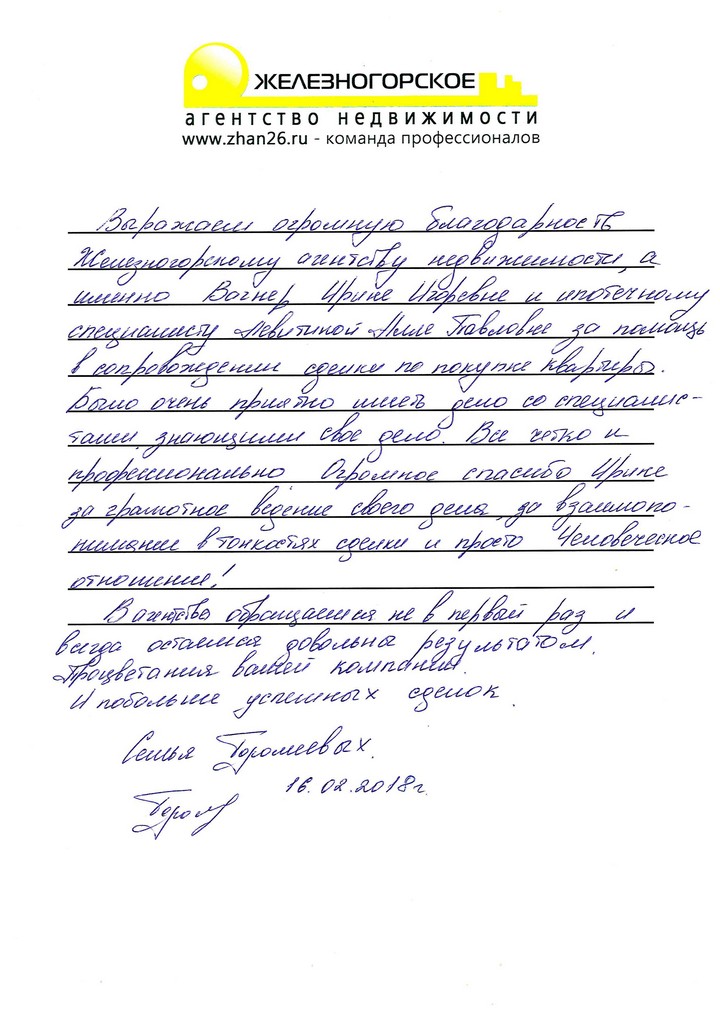 ЖЕЛЕЗНОГОРСКОЕ
агентство недвижимости
www.zhan26.ru - команда профессионалов
Выражаем огромную благодарность
Железногорскому агентству недвижимости, а
именно Вагнер Ирине Игоревне и ипотечному
специалисту Левитиной Алле Павловне за помощь
в сопровождении сделки по покупке квартиры.
Было очень приятно иметь дело со специалис-
тами, знающими свое дело. Все четко и
профессионально Огромное спасибо Ирине
за грамотное ведение своего дела, за взаимопо-
нимание в тонкостях сделки и просто Человеческое
отношение!
В агентство обращаемся не в первый раз и
всегда остаемся довольны результатом.
Процветания вашей компании.
И побольше успешных сделок.
Семья
16.02.2018г.